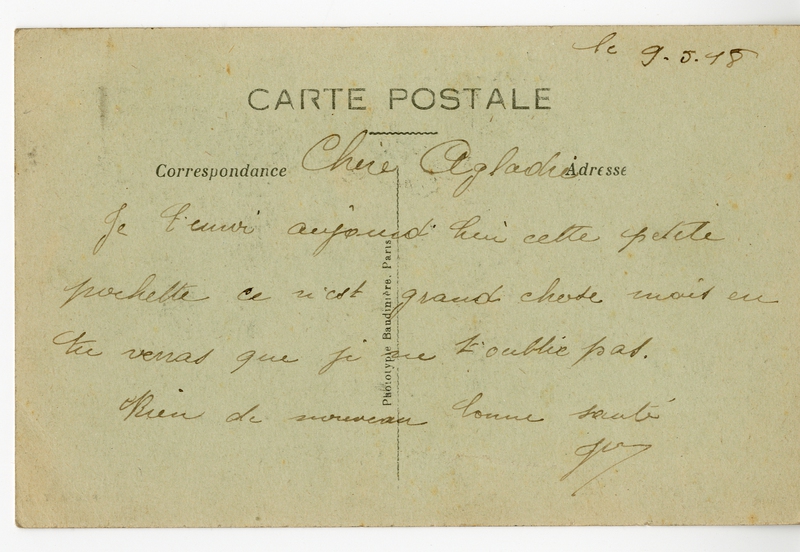 le 9.5.18
CARTE POSTALE
Correspondance
Chère Agladie
Adresse
Je t'envoi aujourd'hui cette petite
pochette ce n'est grand chose mais en
tu verras que je ne t'oublie pas.
Rien de nouveau bonne santé
Phototypie Baudinière, Paris